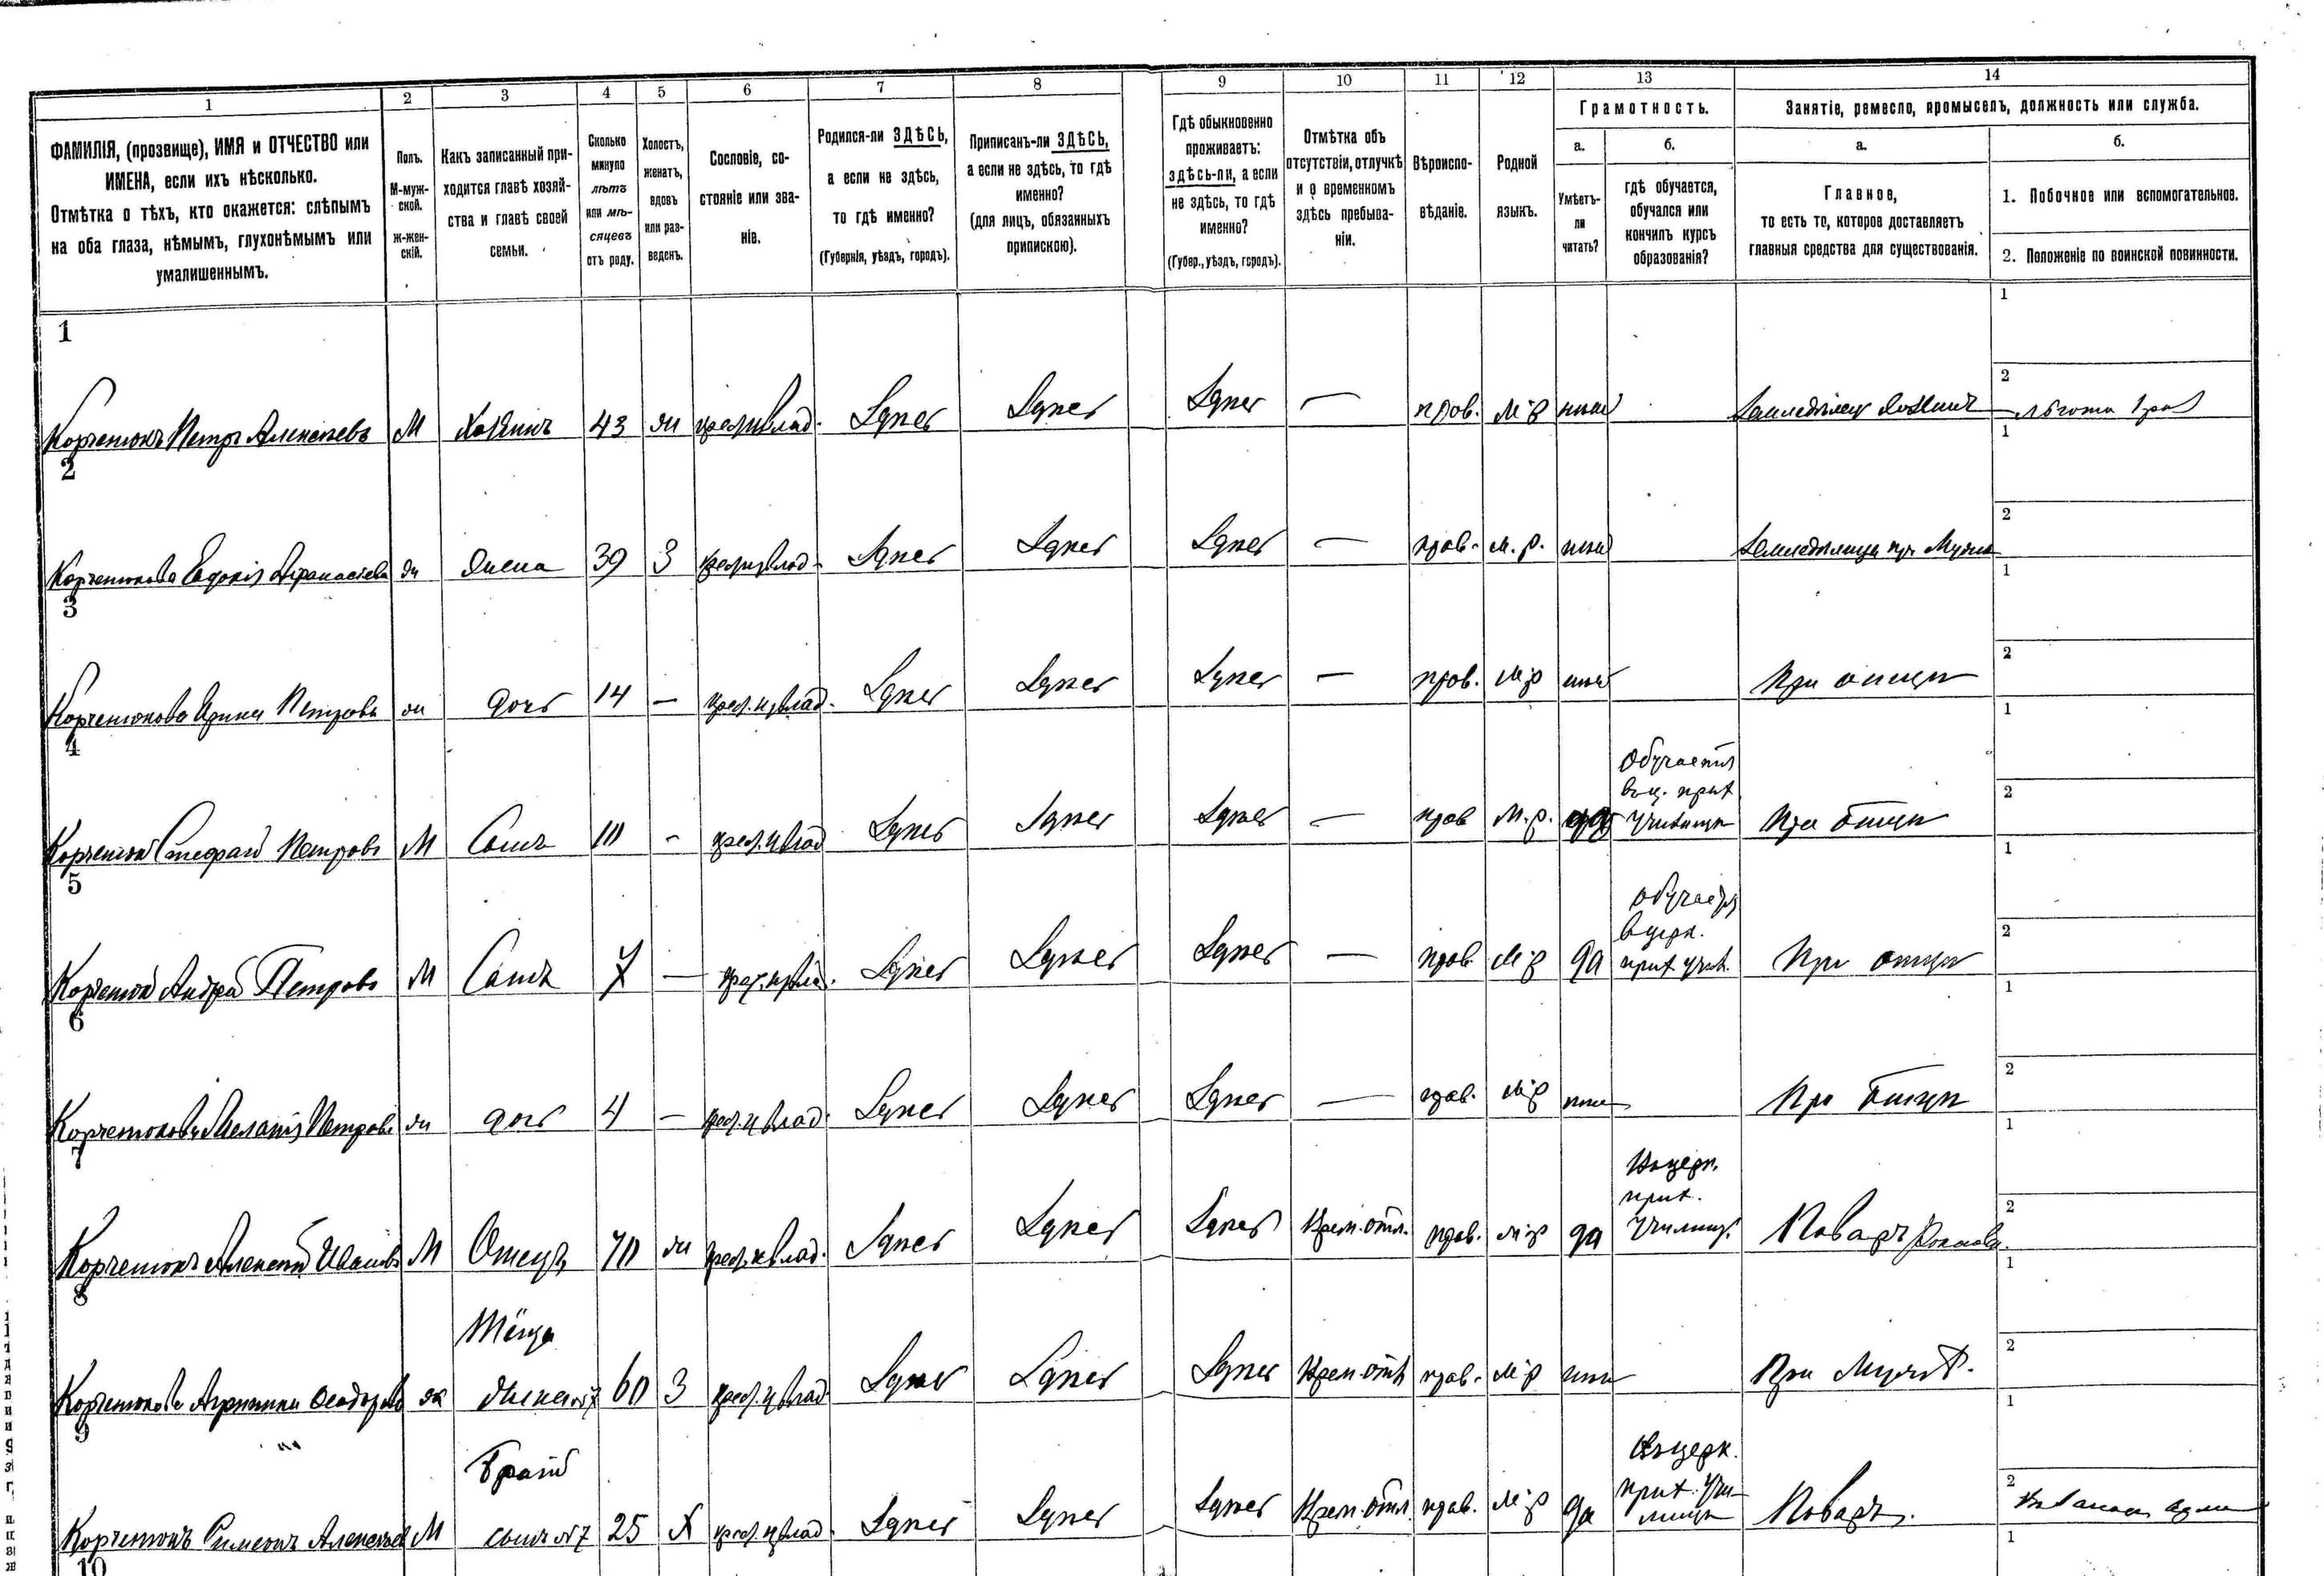 1 2 3 4 5 6 7 8 9 10 11 12 13 14
ФАМИЛІЯ, (прозвище), ИМЯ и ОТЧЕСТВО или
ИМЕНА, если ихъ нѣсколько.
Отмѣтка о тѣхъ, кто окажется: слѣпымъ
на оба глаза, нѣмымъ, глухонѣмымъ или
умалишеннымъ.
Полъ.
М-муж-
ской.
Ж-жен-
скій.
Какъ записанный при-
ходится главѣ хозяй-
ства и главѣ своей
семьи.
Сколько
минуло
лѣтъ
или мѣ-
сяцевъ
отъ роду.
Холостъ,
женатъ,
вдовъ
или раз-
веденъ.
Сословіе, со-
стояніе или зва-
ніе.
Родился-ли ЗДѢСЬ,
а если не здѣсь,
то гдѣ именно?
(Губернія, уѣздъ, городъ).
Приписанъ-ли ЗДѢСЬ,
а если не здѣсь, то гдѣ
именно?
(для лицъ, обязанныхъ
припискою).
Гдѣ обыкновенно
проживаетъ:
здѣсь-ли, а если
не здѣсь, то гдѣ
именно?
(Губер., уѣздъ, городъ).
Отмѣтка объ
отсутствіи, отлучкѣ
и о временномъ
здѣсь пребыва-
ніи.
Вѣроиспо-
вѣданіе.
Родной
языкъ.
Грамотность.
а.
Умѣетъ-
ли
читать?
б.
гдѣ обучается,
обучался или
кончилъ курсъ
образованія?
Занятіе, ремесло, промыселъ, должность или служба.
а.
Главное,
то есть то, которое доставляетъ
главныя средства для существованія.
б.
1. Побочное или вспомогательное.
2. Положеніе по воинской повинности.
1
Корчетюкъ Петръ Алексѣевъ М Хозяинъ 43 ж Здѣсь Здѣсь Здѣсь — прав. м.р нѣтъ Земледѣлецъ хозяинъ
2
Корчетюкова Евдокія Афанасіева ж жена 39 З Здѣсь Здѣсь Здѣсь — прав. м.р. нѣтъ при мужѣ
3
Корчетюкова Петрова ж дочь 14 — Здѣсь Здѣсь Здѣсь — прав. м.р нѣтъ При отцѣ
4
Обучается
въ ц. прих
Корчетюкъ Стефанъ Петровъ М Сынъ 10 - Здѣсь Здѣсь Здѣсь — прав м.р. да Училищѣ При отцѣ
5
обучается
въ церк.
Корчетюкъ Андрей Петровъ М Сынъ 7 — Здѣсь Здѣсь Здѣсь — прав м.р да прих учил. При отцѣ
6
Корчетюкова Меланія Петрова ж дочь 4 — Здѣсь Здѣсь Здѣсь — прав. м.р нѣтъ При отцѣ
7
Въ церк.
прих.
Корчетюкъ Алексѣй Ивановъ М Отецъ 70 ж Здѣсь Здѣсь Здѣсь Врем. отл. прав. м.р да Училищ. Поваръ
8
Корчетюкова Агрипина Ѳеодорова ж жена №7 60 З Здѣсь Здѣсь Здѣсь Врем. отл прав. м.р нѣтъ При Мужѣ.
9
Братъ
Въ церк.
прих. Учи-
Корчетюкъ Симеонъ Алексѣевъ М сынъ №7 25 Х Здѣсь Здѣсь Здѣсь Врем. отл прав. м.р да лищѣ Поваръ.
10